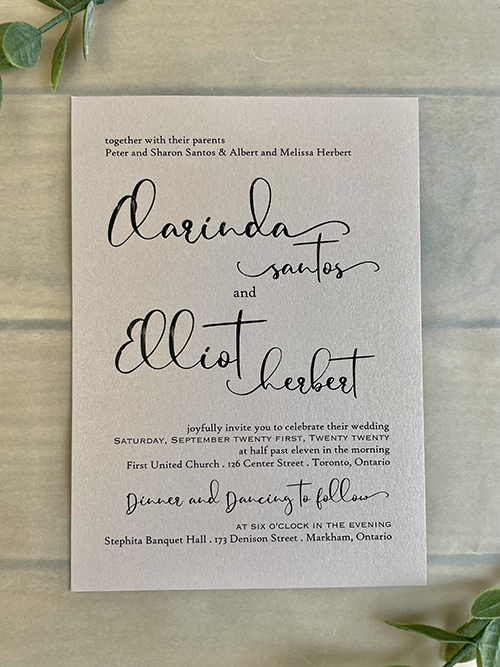 together with their parents
Peter and Sharon Santos & Albert and Melissa Herbert
Clarinda
santos
and
Elliot
herbert
joyfully invite you to celebrate their wedding
SATURDAY, SEPTEMBER TWENTY FIRST, TWENTY TWENTY
at half past eleven in the morning
First United Church . 126 Center Street . Toronto, Ontario
Dinner and Dancing to follow
AT SIX O'CLOCK IN THE EVENING
Stephita Banquet Hall . 173 Denison Street . Markham, Ontario